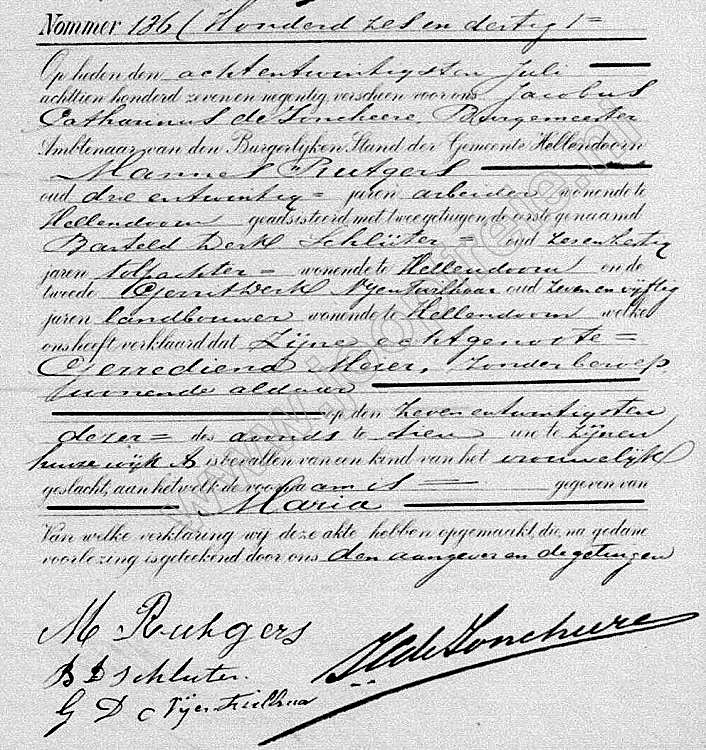 Nommer 136 (Honderd zes en dertig)
Op heden den achtentwintigsten Juli
achttien honderd zeven en negentig, verscheen voor ons Jacobus
Catharinus de Joncheere, Burgemeester
Ambtenaar van den Burgerlijken Stand der Gemeente Hellendoorn
Mannes Rutgers
oud drie entwintig = jaren, arbeider wonende te
Hellendoorn geadsisteerd met twee getuigen, de eerste genaamd
Barteld Derk Schlüter = oud zesenzestig
jaren tolpachter = wonende te Hellendoorn en de
tweede Gerrit Derk Nijentwilhaar oud zeven en vijftig
jaren landbouwer wonende te Hellendoorn welke
ons heeft verklaard dat Zijne echtgenoote =
Gerrediena Meijer, zonder beroep
wonende aldaar
op den zeven entwintigsten
dezer = des avonds te tien ure te zijnen
huize wijk A is bevallen van een kind van het vrouwelijk
geslacht, aan hetwelk de voornaam is = gegeven van
Maria
Van welke verklaring wij deze akte hebben opgemaakt, die, na gedane
voorlezing is geteekend door ons den aangever en de getuigen
M Rutgers
B D Schluter. JC de Joncheere
G D Nijentwilhaar